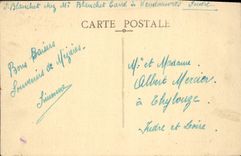 Blanchet chez Mr Blanchet Carré à Vendœuvres Indre
CARTE POSTALE
Bons Baisers
Souvenirs de Mézières
Simonne
Mr et Madame
Albert Mercier
à Thilouze
Indre et Loire